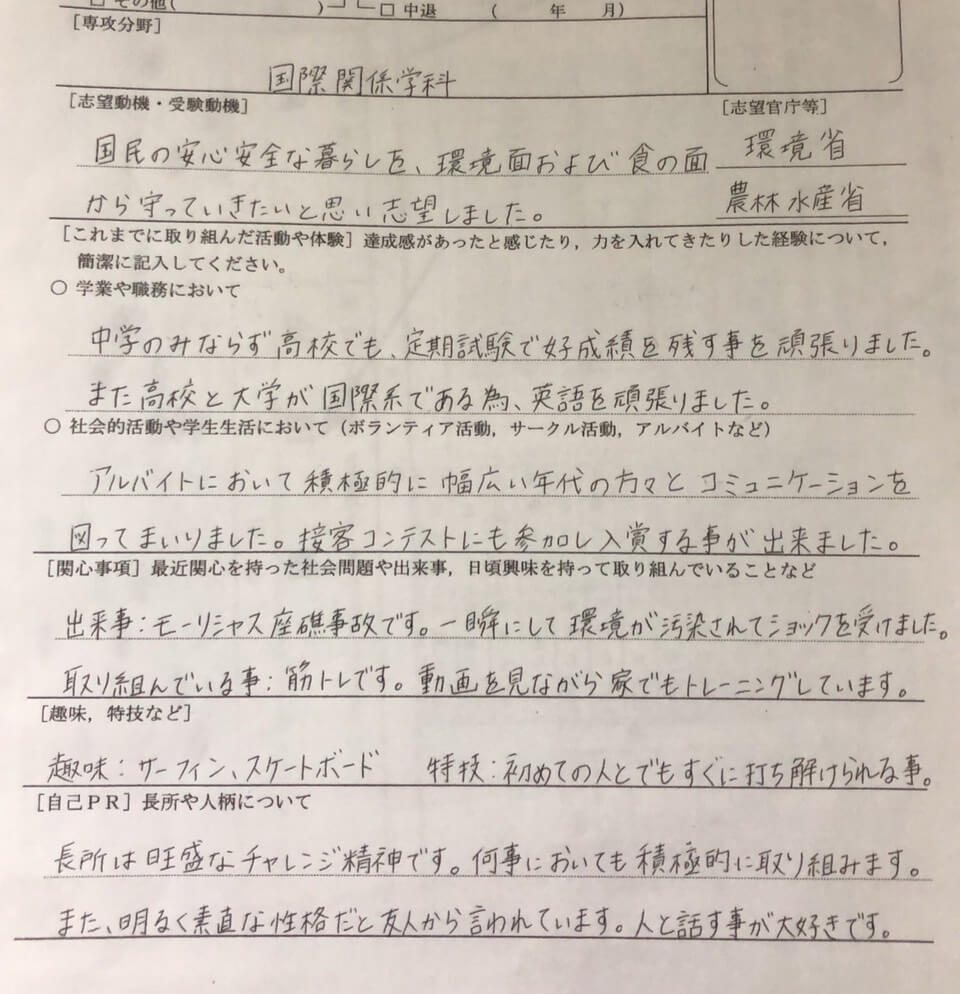 □ その他(　　　) □ 中退　(　年　月)
[専攻分野]
国際関係学科
[志望動機・受験動機]
[志望官庁等]
国民の安心安全な暮らしを、環境面および食の面
環境省
から守っていきたいと思い志望しました。
農林水産省
[これまでに取り組んだ活動や体験] 達成感があったと感じたり，力を入れてきたりした経験について，
簡潔に記入してください。
○ 学業や職務において
中学のみならず高校でも、定期試験で好成績を残す事を頑張りました。
また高校と大学が国際系である為、英語を頑張りました。
○ 社会的活動や学生生活において（ボランティア活動，サークル活動，アルバイトなど）
アルバイトにおいて積極的に幅広い年代の方々とコミュニケーションを
図ってまいりました。接客コンテストにも参加し入賞する事が出来ました。
[関心事項] 最近関心を持った社会問題や出来事，日頃興味を持って取り組んでいることなど
出来事：モーリシャス座礁事故です。一瞬にして環境が汚染されてショックを受けました。
取り組んでいる事：筋トレです。動画を見ながら家でもトレーニングしています。
[趣味，特技など]
趣味：サーフィン、スケートボード　特技：初めての人とでもすぐに打ち解けられる事。
[自己ＰＲ] 長所や人柄について
長所は旺盛なチャレンジ精神です。何事においても積極的に取り組みます。
また、明るく素直な性格だと友人から言われています。人と話す事が大好きです。